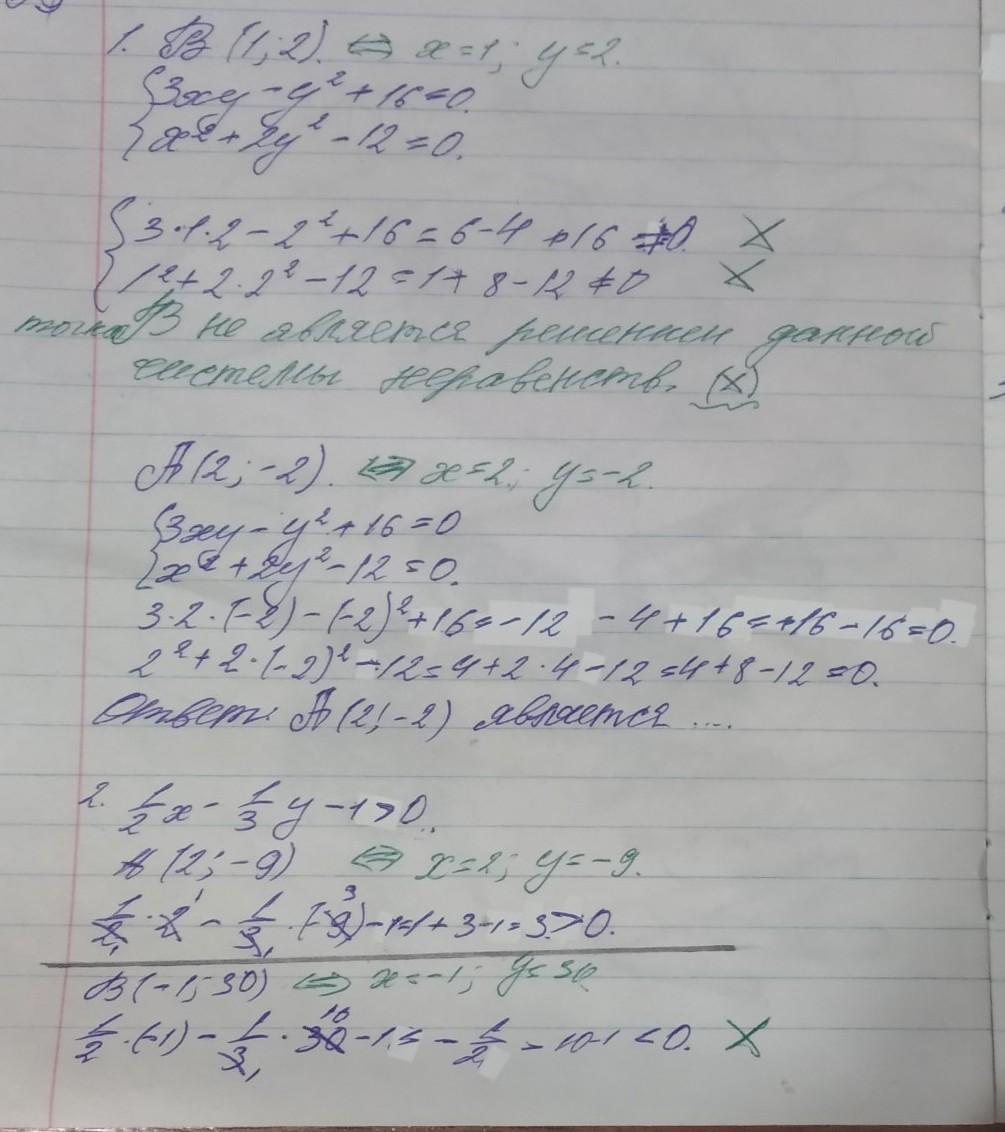 1. B (1; 2). ⇔ x=1; y=2.
{3xy - y² + 16 = 0.
{x² + 2y² - 12 = 0.
{3·1·2 - 2² + 16 = 6 - 4 + 16 ≠ 0. X
{1² + 2·2² - 12 = 1 + 8 - 12 ≠ 0 X
точка B не является решением данной
системы неравенств. (X)
A (2; -2). ⇔ x=2; y=-2.
{3xy - y² + 16 = 0
{x² + 2y² - 12 = 0.
3·2·(-2) - (-2)² + 16 = -12 - 4 + 16 = +16 - 16 = 0.
2² + 2·(-2)² - 12 = 4 + 2·4 - 12 = 4 + 8 - 12 = 0.
Ответ: A (2; -2) является ....
2. 1/2 x - 1/3 y - 1 > 0.
A (2; -9) ⇔ x=2; y=-9.
1/2 · 2 - 1/3 · (-9) - 1 = 1 + 3 - 1 = 3 > 0.
B (-1; 30) ⇔ x=-1; y=30
1/2 · (-1) - 1/3 · 30 - 1 = - 1/2 - 10-1 < 0. X